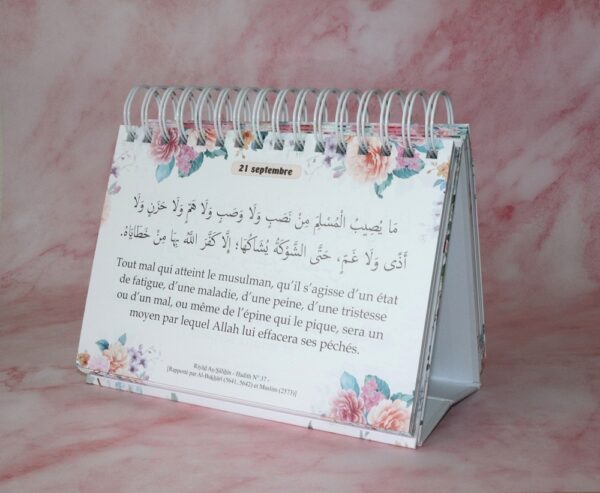 21 septembre
مَا يُصِيبُ الْمُسْلِمَ مِنْ نَصَبٍ وَلَا وَصَبٍ وَلَا هَمٍّ وَلَا حَزَنٍ وَلَا
أَذًى وَلَا غَمٍّ، حَتَّى الشَّوْكَةُ يُشَاكُهَا؛ إِلَّا كَفَّرَ اللَّهُ بِهَا مِنْ خَطَايَاهُ.
Tout mal qui atteint le musulman, qu'il s'agisse d'un état
de fatigue, d'une maladie, d'une peine, d'une tristesse
ou d'un mal, ou même de l'épine qui le pique, sera un
moyen par lequel Allah lui effacera ses péchés.
Riyâd As-Sâlihîn - Hadith N° 37 -
[Rapporté par Al-Bukhârî (5641, 5642) et Muslim (2573)]